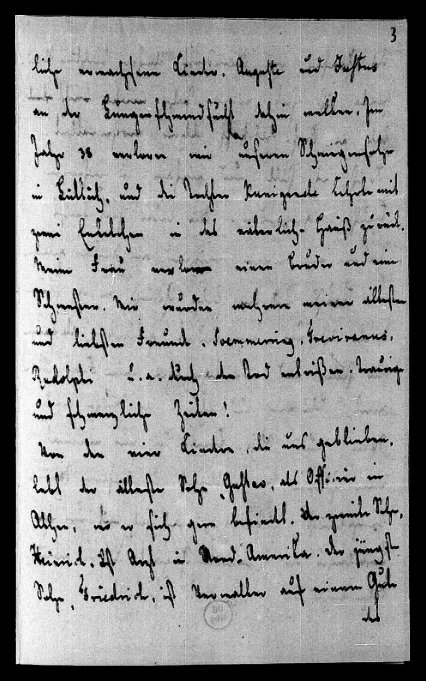 3
liche erwachsene Kinder, Auguste und Justus
an der Lungenschwindsucht dahin welken. Im
Jahre 38 verloren wir unseren Schwiegersohn
in Lüttich, und die Tochter Kunigunde kehrte mit
zwei Enkelchen in das väterliche Hauß zurück.
Meine Frau verlor einen Bruder und eine
Schwester. Mir wurden mehrere meiner ältesten
und liebsten Freunde, Soemmering, Treviranus,
Rudolphi u. a. durch den Tod entrißen. Traurige
und schmerzliche Zeiten!
Von den vier Kindern, die uns geblieben,
lebt der älteste Sohn, Gustav, als Offizier in
Athen, wo er sich gern befindet. Der zweite Sohn,
Heinrich, ist Arzt in Nord-Amerika. Der jüngste
Sohn, Friedrich, ist Verwalter auf einem Gute
des